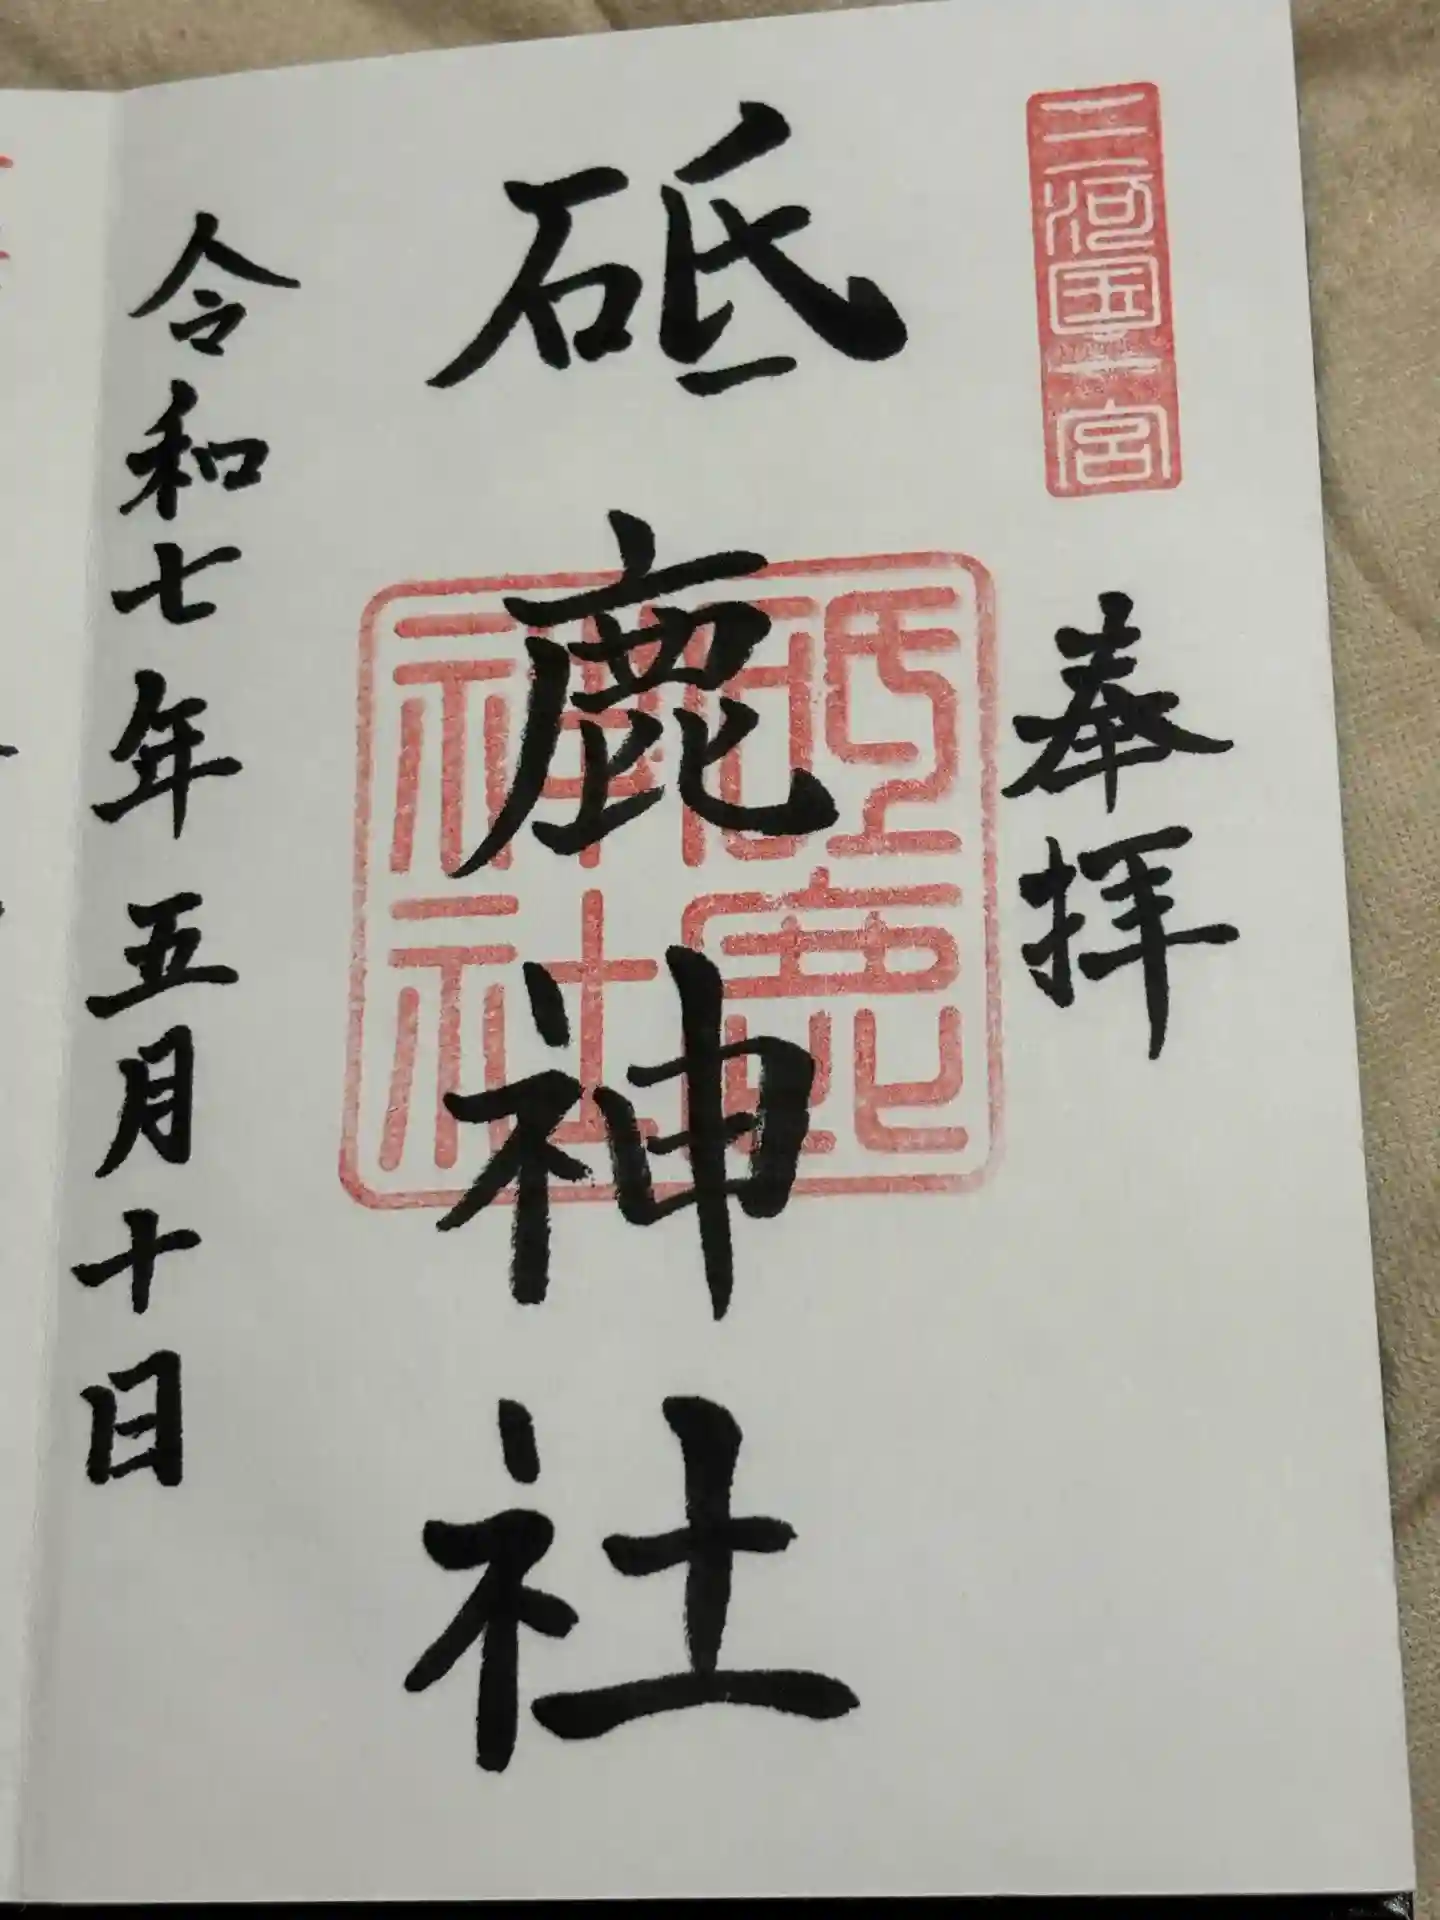 三河国一宮
奉拝
砥鹿神社
砥鹿
神社
令和七年五月十日